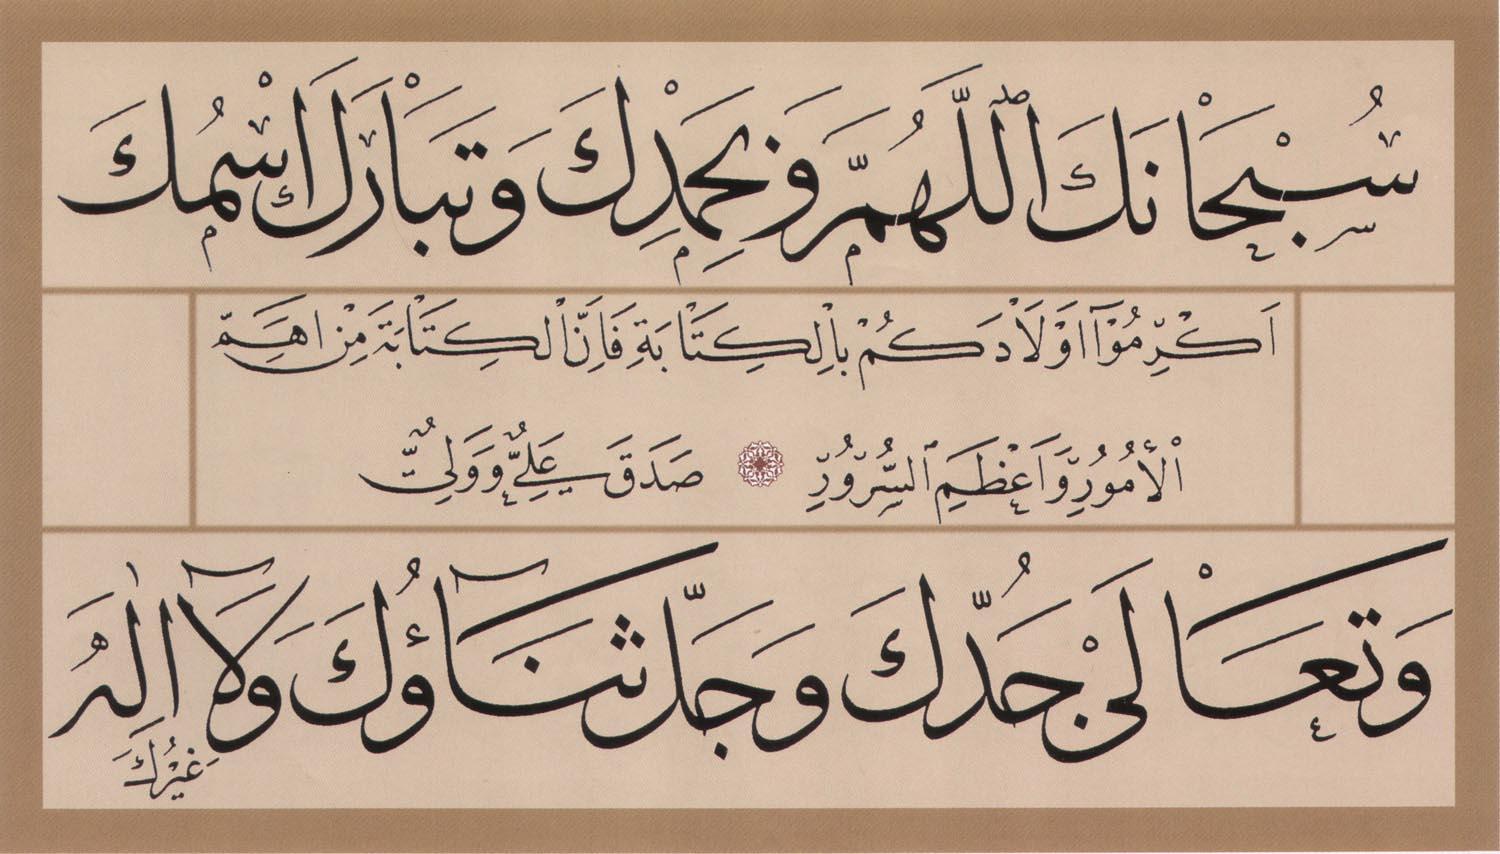 سُبْحَانَكَ اللّٰهُمَّ وَبِحَمْدِكَ وَتَبَارَكَ اسْمُكَ
اَكْرِمُوٓا اَوْلَادَكُمْ بِالْكِتَابَةِ فَاِنَّ الْكِتَابَةَ مِنْ اَهَمِّ
الْأُمُورِ وَاَعْظَمِ السُّرُورِ صَدَقَ عَلِيٌّ وَوَلِيٌّ
وَتَعَالٰى جَدُّكَ وَجَلَّ ثَنَآؤُكَ وَلَآ اِلٰهَ
غَيْرُكَ